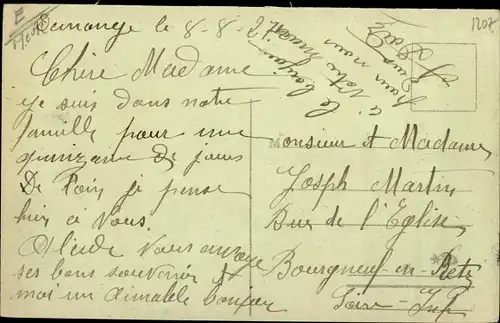 E
1207
le 8-8-2
Chère Madame
je suis dans notre
famille pour une
quinzaine de jours
De Loin je pense
bien à Vous.
Vous envoye
ses bons souvenirs
moi un aimable bonjour
le bonjour
à votre mari
pour nous
Monsieur et Madame
Joseph Martin
Rue de l'Eglise
Bourgneuf-en-Retz
Loire-Inf